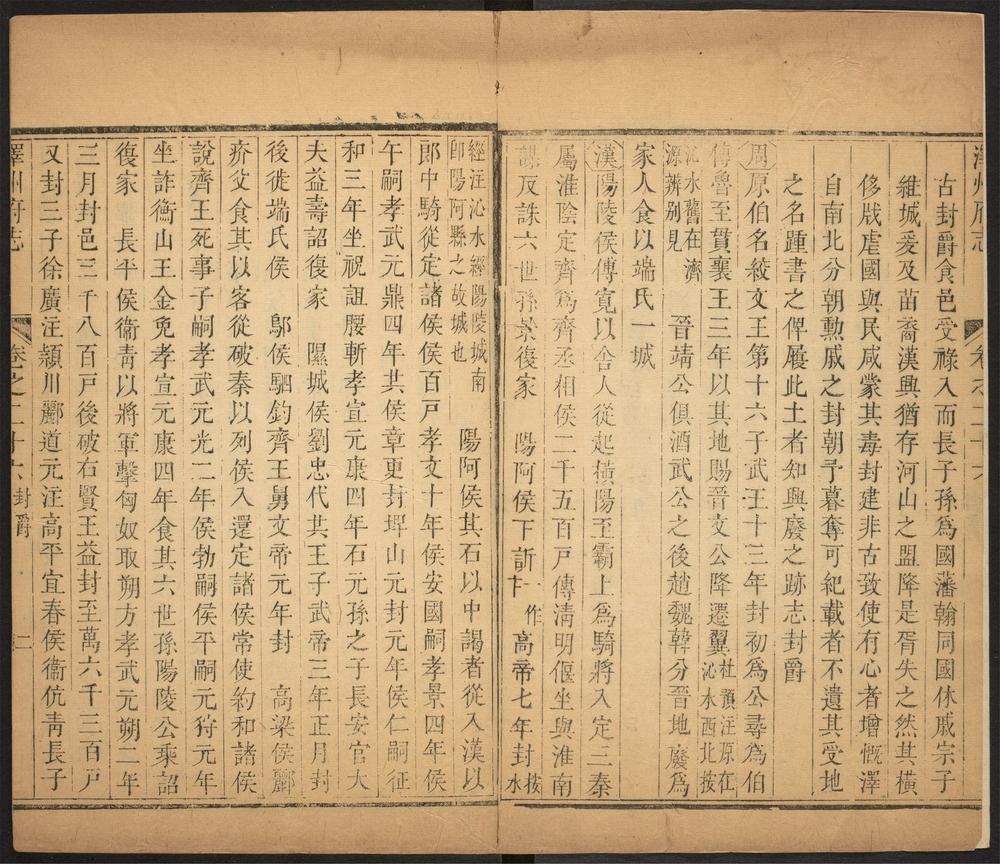 澤州府志　卷之二十六
古封爵食邑受祿入而長子孫爲國藩翰同國休戚宗子
維城爰及苗裔漢興猶存河山之盟降是胥失之然其橫
侈戕虐國與民咸蒙其毒封建非古致使有心者增慨澤
自南北分朝勲戚之封朝予暮奪可紀載者不遺其受地
之名踵書之俾屨此土者知興廢之跡志封爵
周原伯名絞文王第十六子武王十三年封初爲公尋爲伯
傳魯至貫襄王三年以其地賜晉文公降遷翼杜預注原在沁水西北按
沁水舊在濟源辨别見　晉靖公俱酒武公之後趙魏韓分晉地廢爲
家人食以端氏一城
漢陽陵侯傅寬以舍人從起橫陽至霸上爲騎將入定三秦
屬淮陰定齊爲齊丞相侯二千五百戸傳淸明偃坐與淮南
謀反誅六世孫景復家　陽阿侯卞訢一作卞高帝七年封按水
經注沁水經陽陵城南卽陽阿縣之故城也　陽阿侯其石以中謁者從入漢以
郎中騎從定諸侯侯百戸孝文十年侯安國嗣孝景四年侯
午嗣孝武元鼎四年其侯章更封埤山元封元年侯仁嗣征
和三年坐祝詛腰斬孝宣元康四年石元孫之子長安官大
夫益壽詔復家　隰城侯劉忠代共王子武帝三年正月封
後徙端氏侯　鄔侯駟鈞齊王舅文帝元年封　高梁侯酈
疥父食其以客從破秦以列侯入還定諸侯常使約和諸侯
說齊王死事子嗣孝武元光二年侯勃嗣侯平嗣元狩元年
坐詐衡山王金免孝宣元康四年食其六世孫陽陵公乘詔
復家　長平侯衞靑以將軍擊匈奴取朔方孝武元朔二年
三月封邑三千八百戸後破右賢王益封至萬六千三百戸
又封三子徐廣注潁川酈道元注高平宜春侯衞伉靑長子
澤州府志　卷之二十六　封爵　二